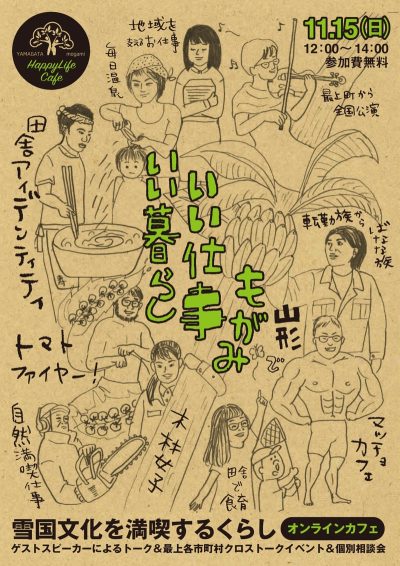 YAMAGATA mogami
HappyLife
Cafe
地域を
支えるお仕事
毎日温泉
11.15(日)
12:00〜14:00
参加費無料
最上町から
全国公演
田舎アイデンティティ
いい仕事
いい暮らし
もがみ
山形
転勤族から
ばなな族
トマト
ファイヤー!
自然満喫仕事
木林女子
田舎で食育
マッチョ
カフェ
雪国文化を満喫するくらし
オンラインカフェ
ゲストスピーカーによるトーク&最上各市町村クロストークイベント&個別相談会